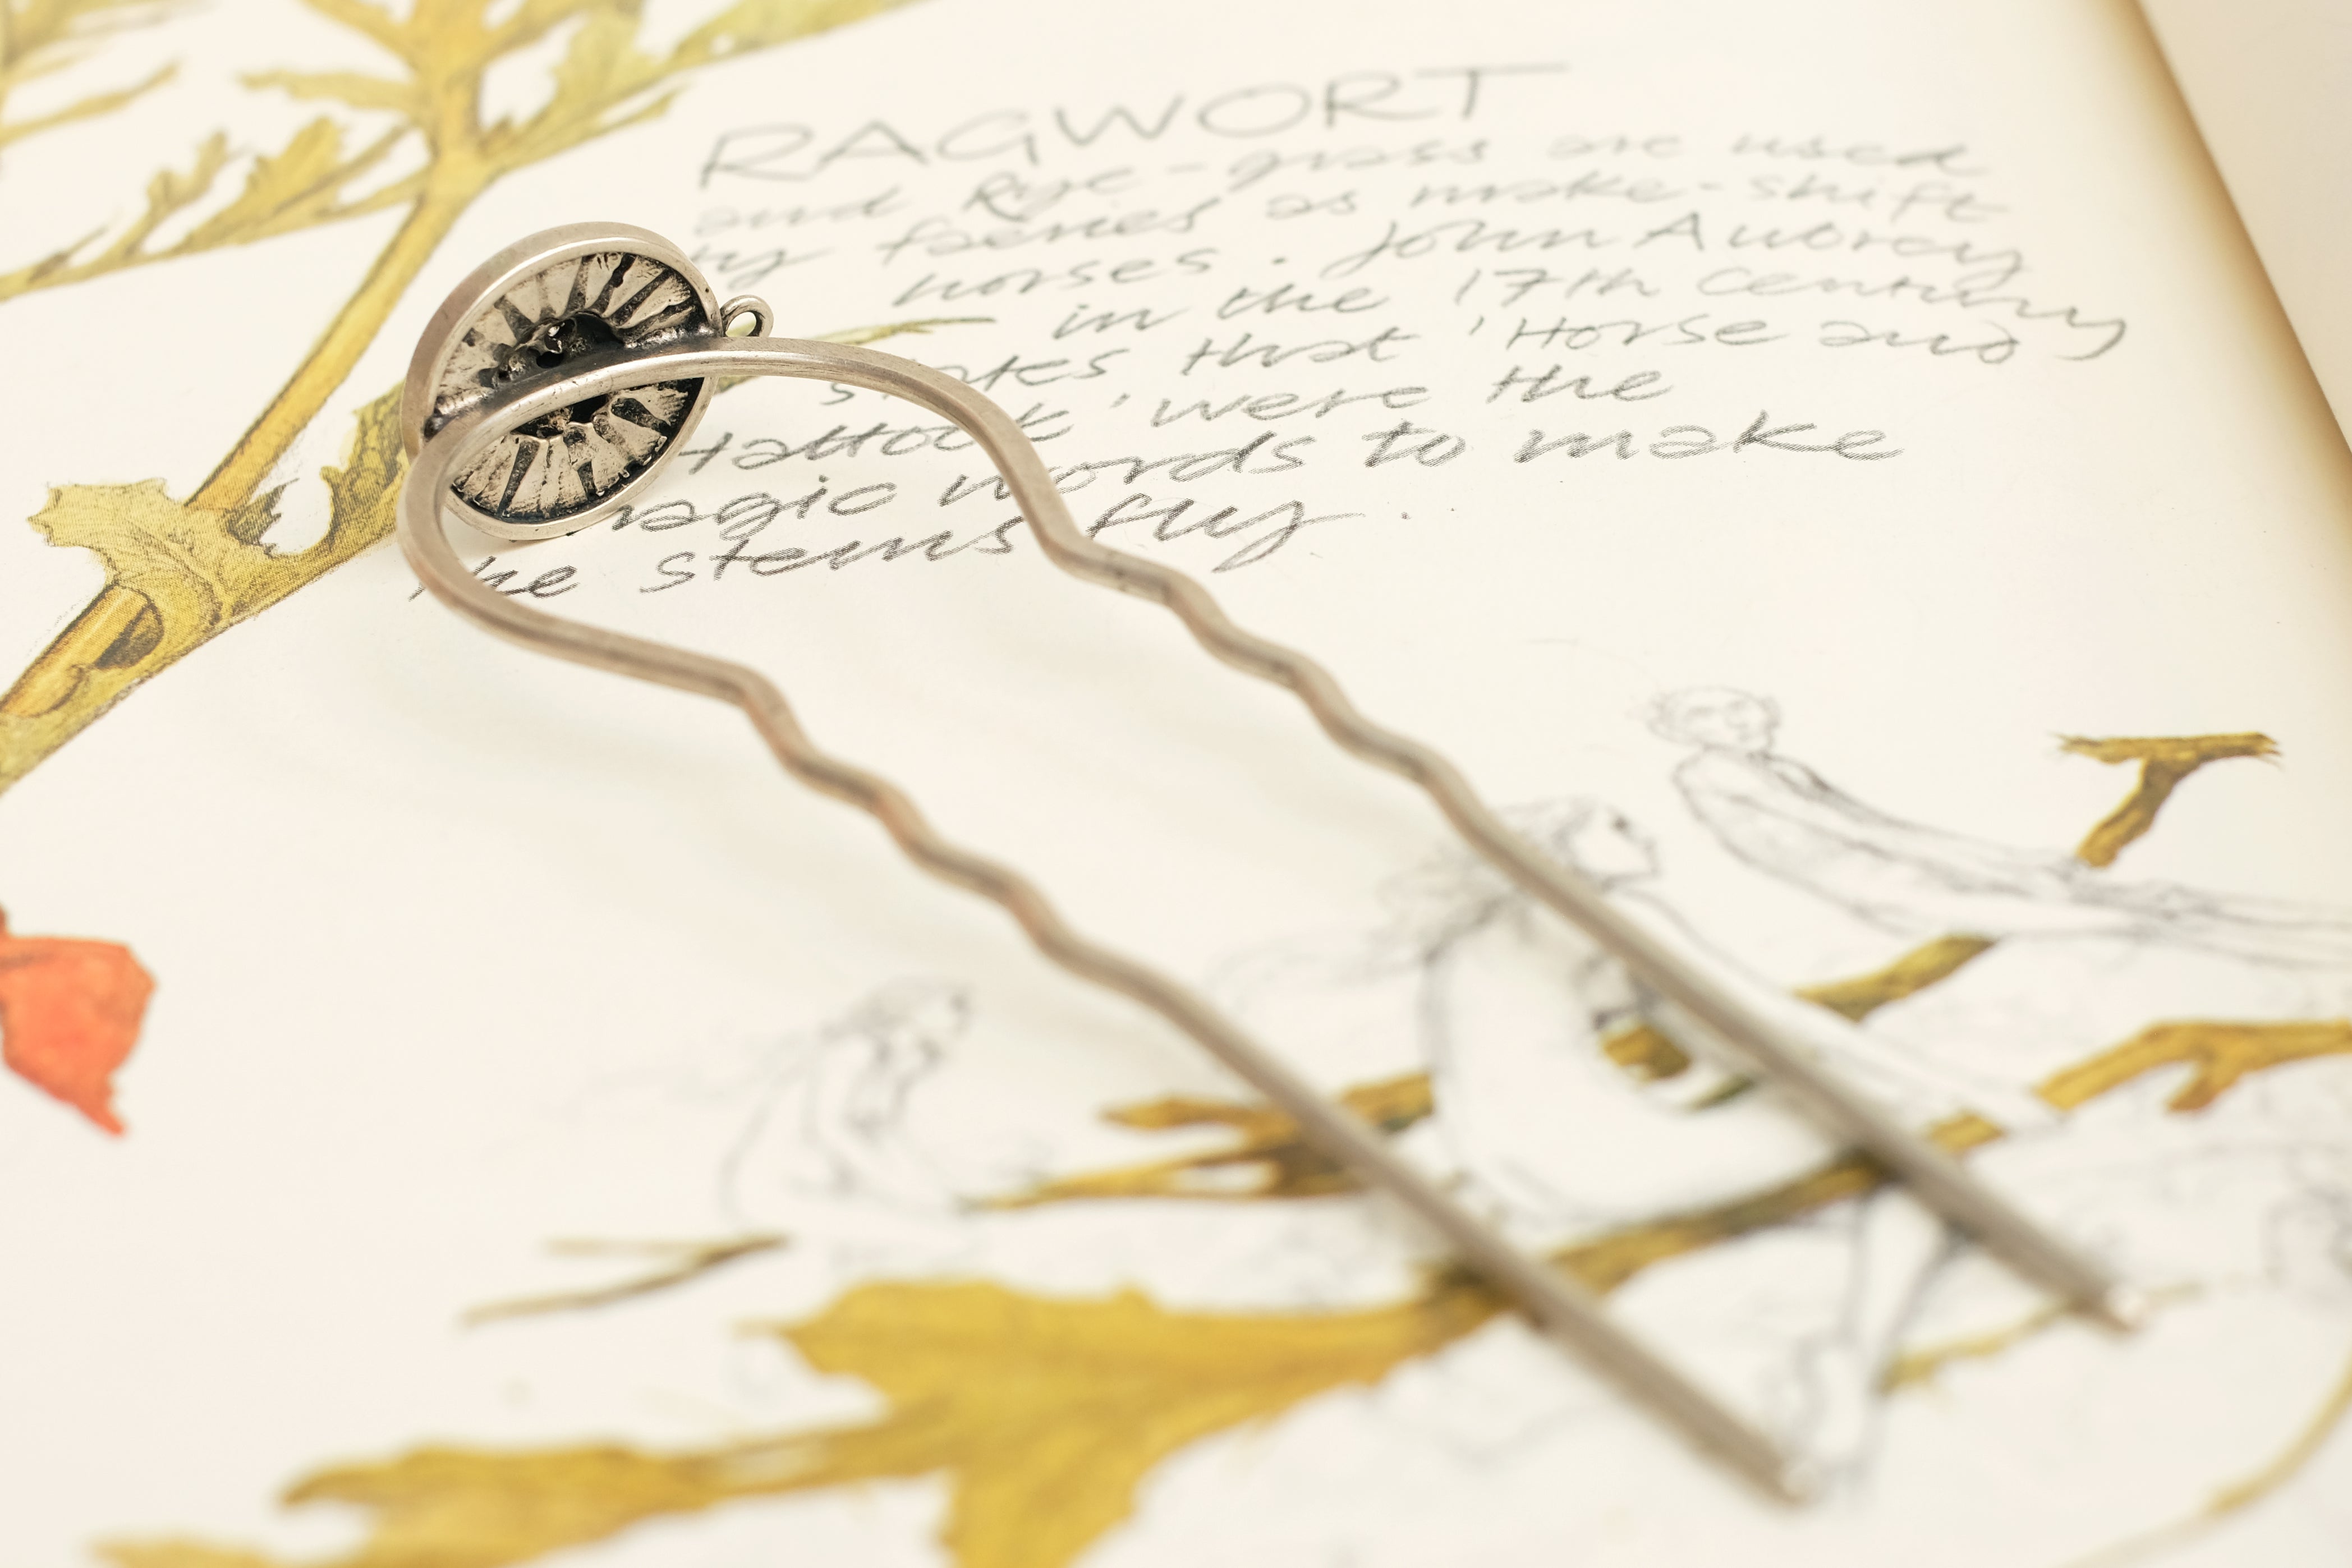 RAGWORT
and Rye-grass are used
by faeries as make-shift
horses. John Aubrey
in the 17th Century
that 'Horse and
Hattock' were the
magic words to make
the stems fly.